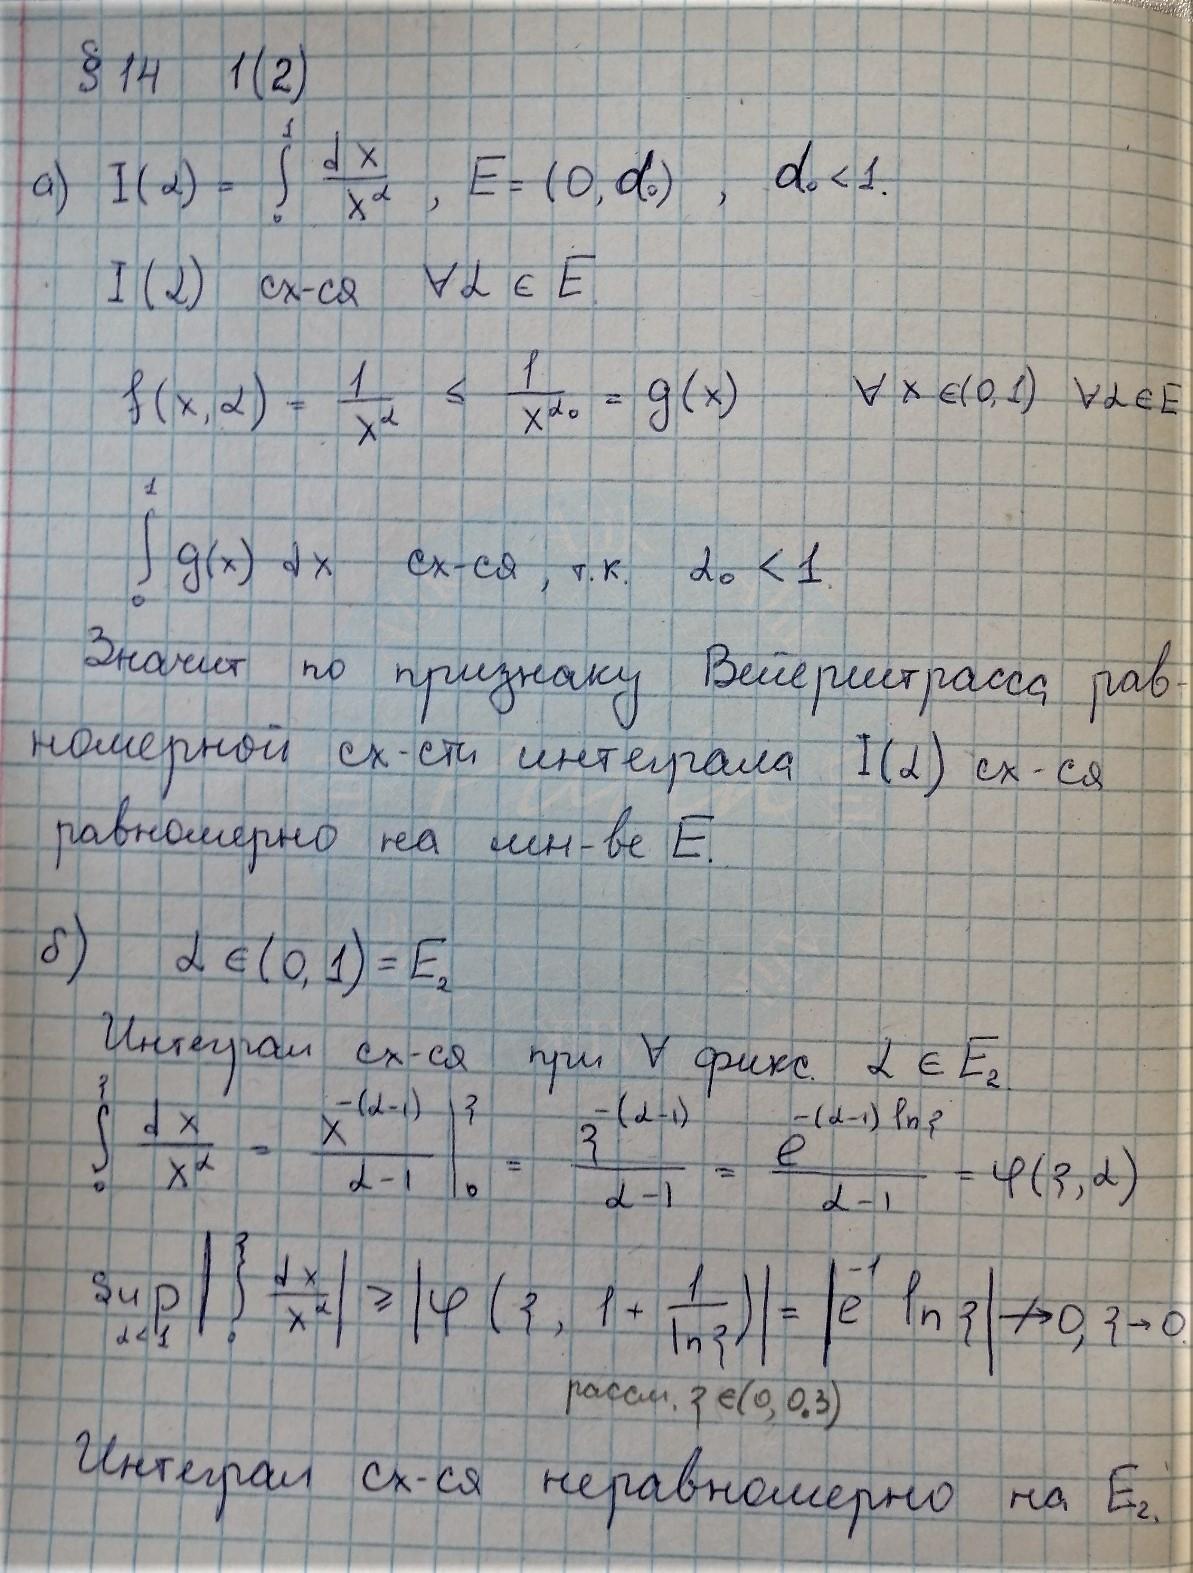 § 14 1(2)
а) I(α) = ∫₀¹ dx/x^α , E = (0, α₀) , α₀ < 1.
I(α) сх-ся ∀α ∈ E
f(x, α) = 1/x^α ≤ 1/x^α₀ = g(x) ∀ x ∈ (0, 1) ∀α ∈ E
∫₀¹ g(x) dx сх-ся, т.к. α₀ < 1.
Значит по признаку Вейерштрасса рав-
номерной сх-сти интеграла I(α) сх-ся
равномерно на мн-ве E.
б) α ∈ (0, 1) = E₂
Интеграл сх-ся при ∀ фикс. α ∈ E₂
∫₀^ξ dx/x^α = x^(-(α-1))/(α-1) |₀^ξ = ξ^(-(α-1))/(α-1) = e^(-(α-1) ln ξ)/(α-1) = φ(ξ, α)
sup_{α<1} |∫₀^ξ dx/x^α| ≥ |φ(ξ, 1 + 1/ln ξ)| = |e^(-1) ln ξ| ↛ 0, ξ → 0
рассм. ξ ∈ (0, 0.3)
Интеграл сх-ся неравномерно на E₂.